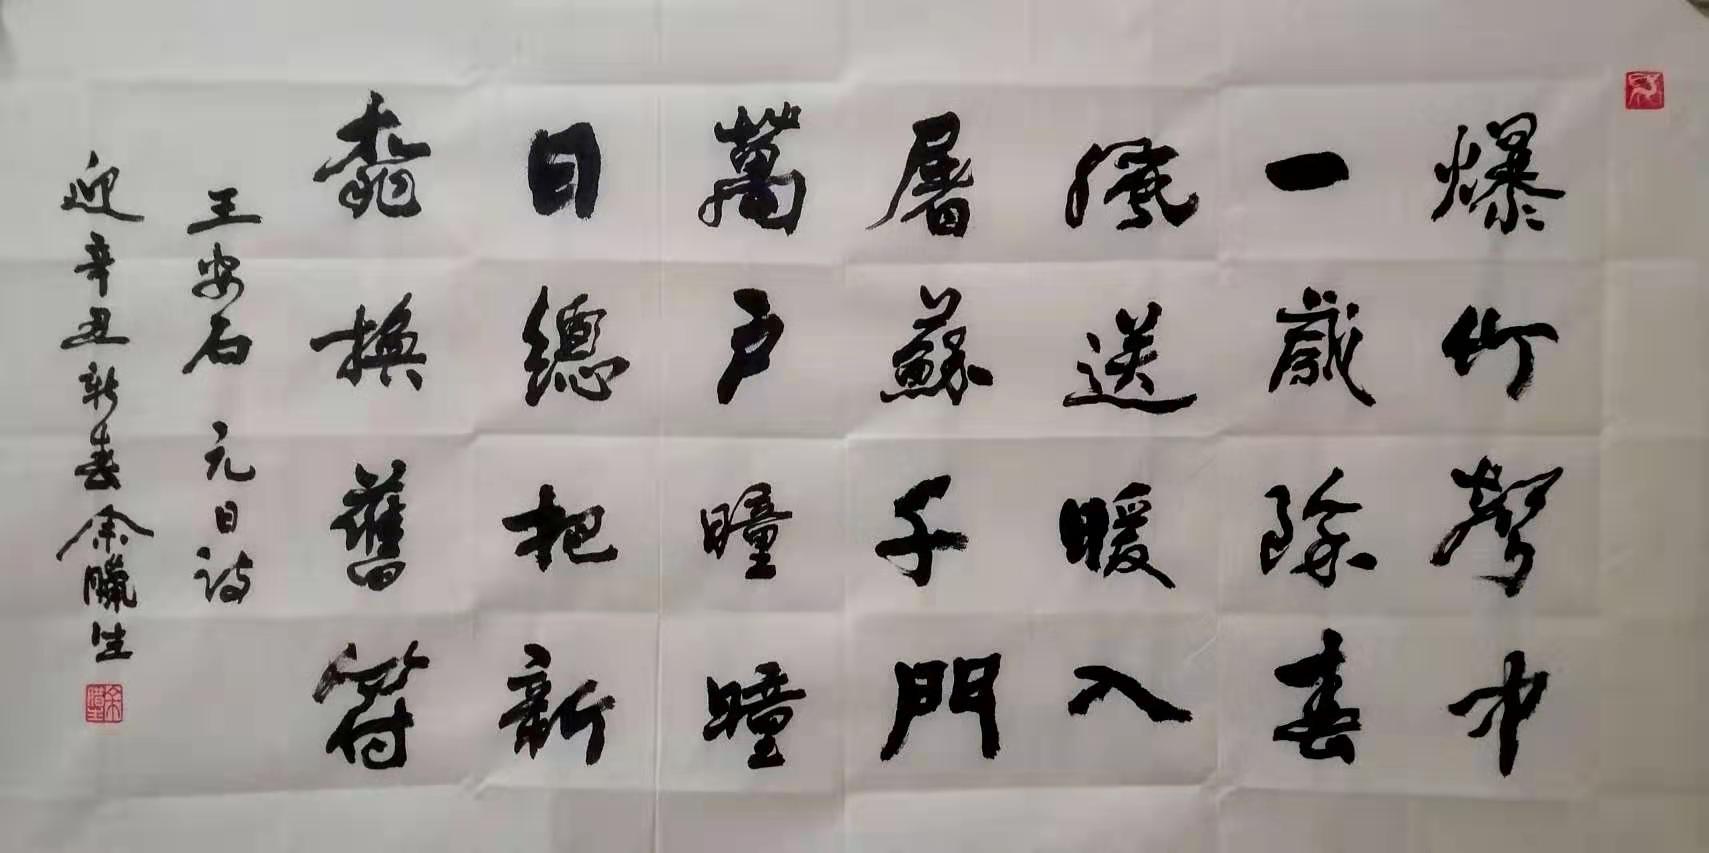 爆竹聲中
一歲除春
風送暖入
屠蘇千門
萬戶曈曈
日總把新
桃換舊符
王安石 元日詩
迎辛丑新春余臘生